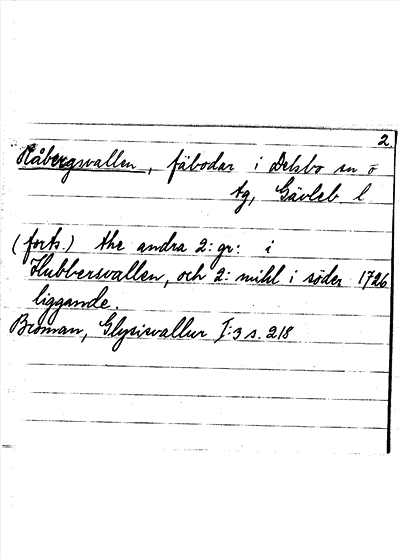 2
Råbergsvallen, fäbodar i Delsbo sn o
tg, Gävleb l
(forts.) the andra 2: gr: i
Klubbersvallen, och 2: mihl i söder 1726
liggande.
Broman, Glysisvallur I:3 s. 218